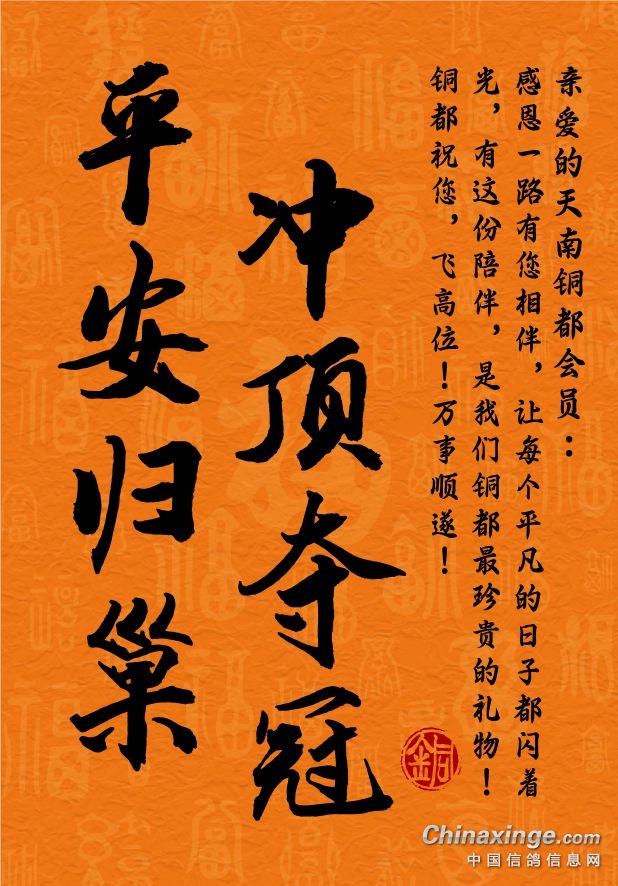 亲爱的天南铜都会员：
感恩一路有您相伴，让每个平凡的日子都闪着
光，有这份陪伴，是我们铜都最珍贵的礼物！
铜都祝您，飞高位！万事顺遂！
冲顶夺冠
平安归巢
銅
Chinaxinge.com
中国信鸽信息网